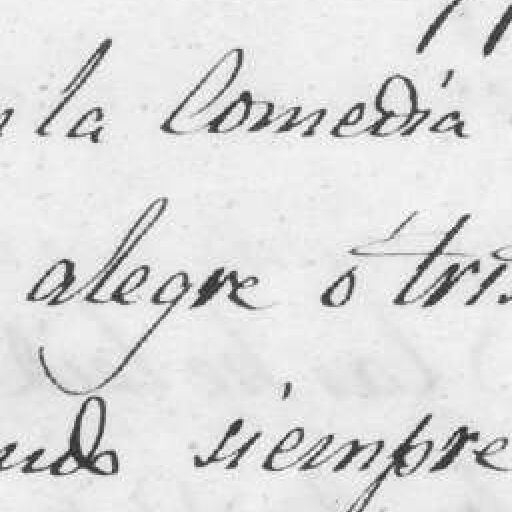 la Comedia
alegre ó tris
siempre